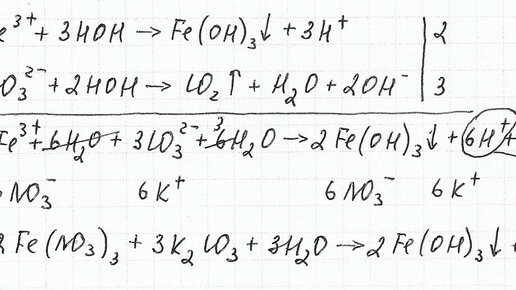 e³⁺ + 3HOH → Fe(OH)₃↓ + 3H⁺ | 2
O₃²⁻ + 2HOH → CO₂↑ + H₂O + 2OH⁻ | 3
Fe³⁺ + 6H₂O + 3CO₃²⁻ + 6 3H₂O → 2Fe(OH)₃↓ + 6H⁺+
6NO₃⁻ 6K⁺ 6NO₃⁻ 6K⁺
2Fe(NO₃)₃ + 3K₂CO₃ + 3H₂O → 2Fe(OH)₃↓ +